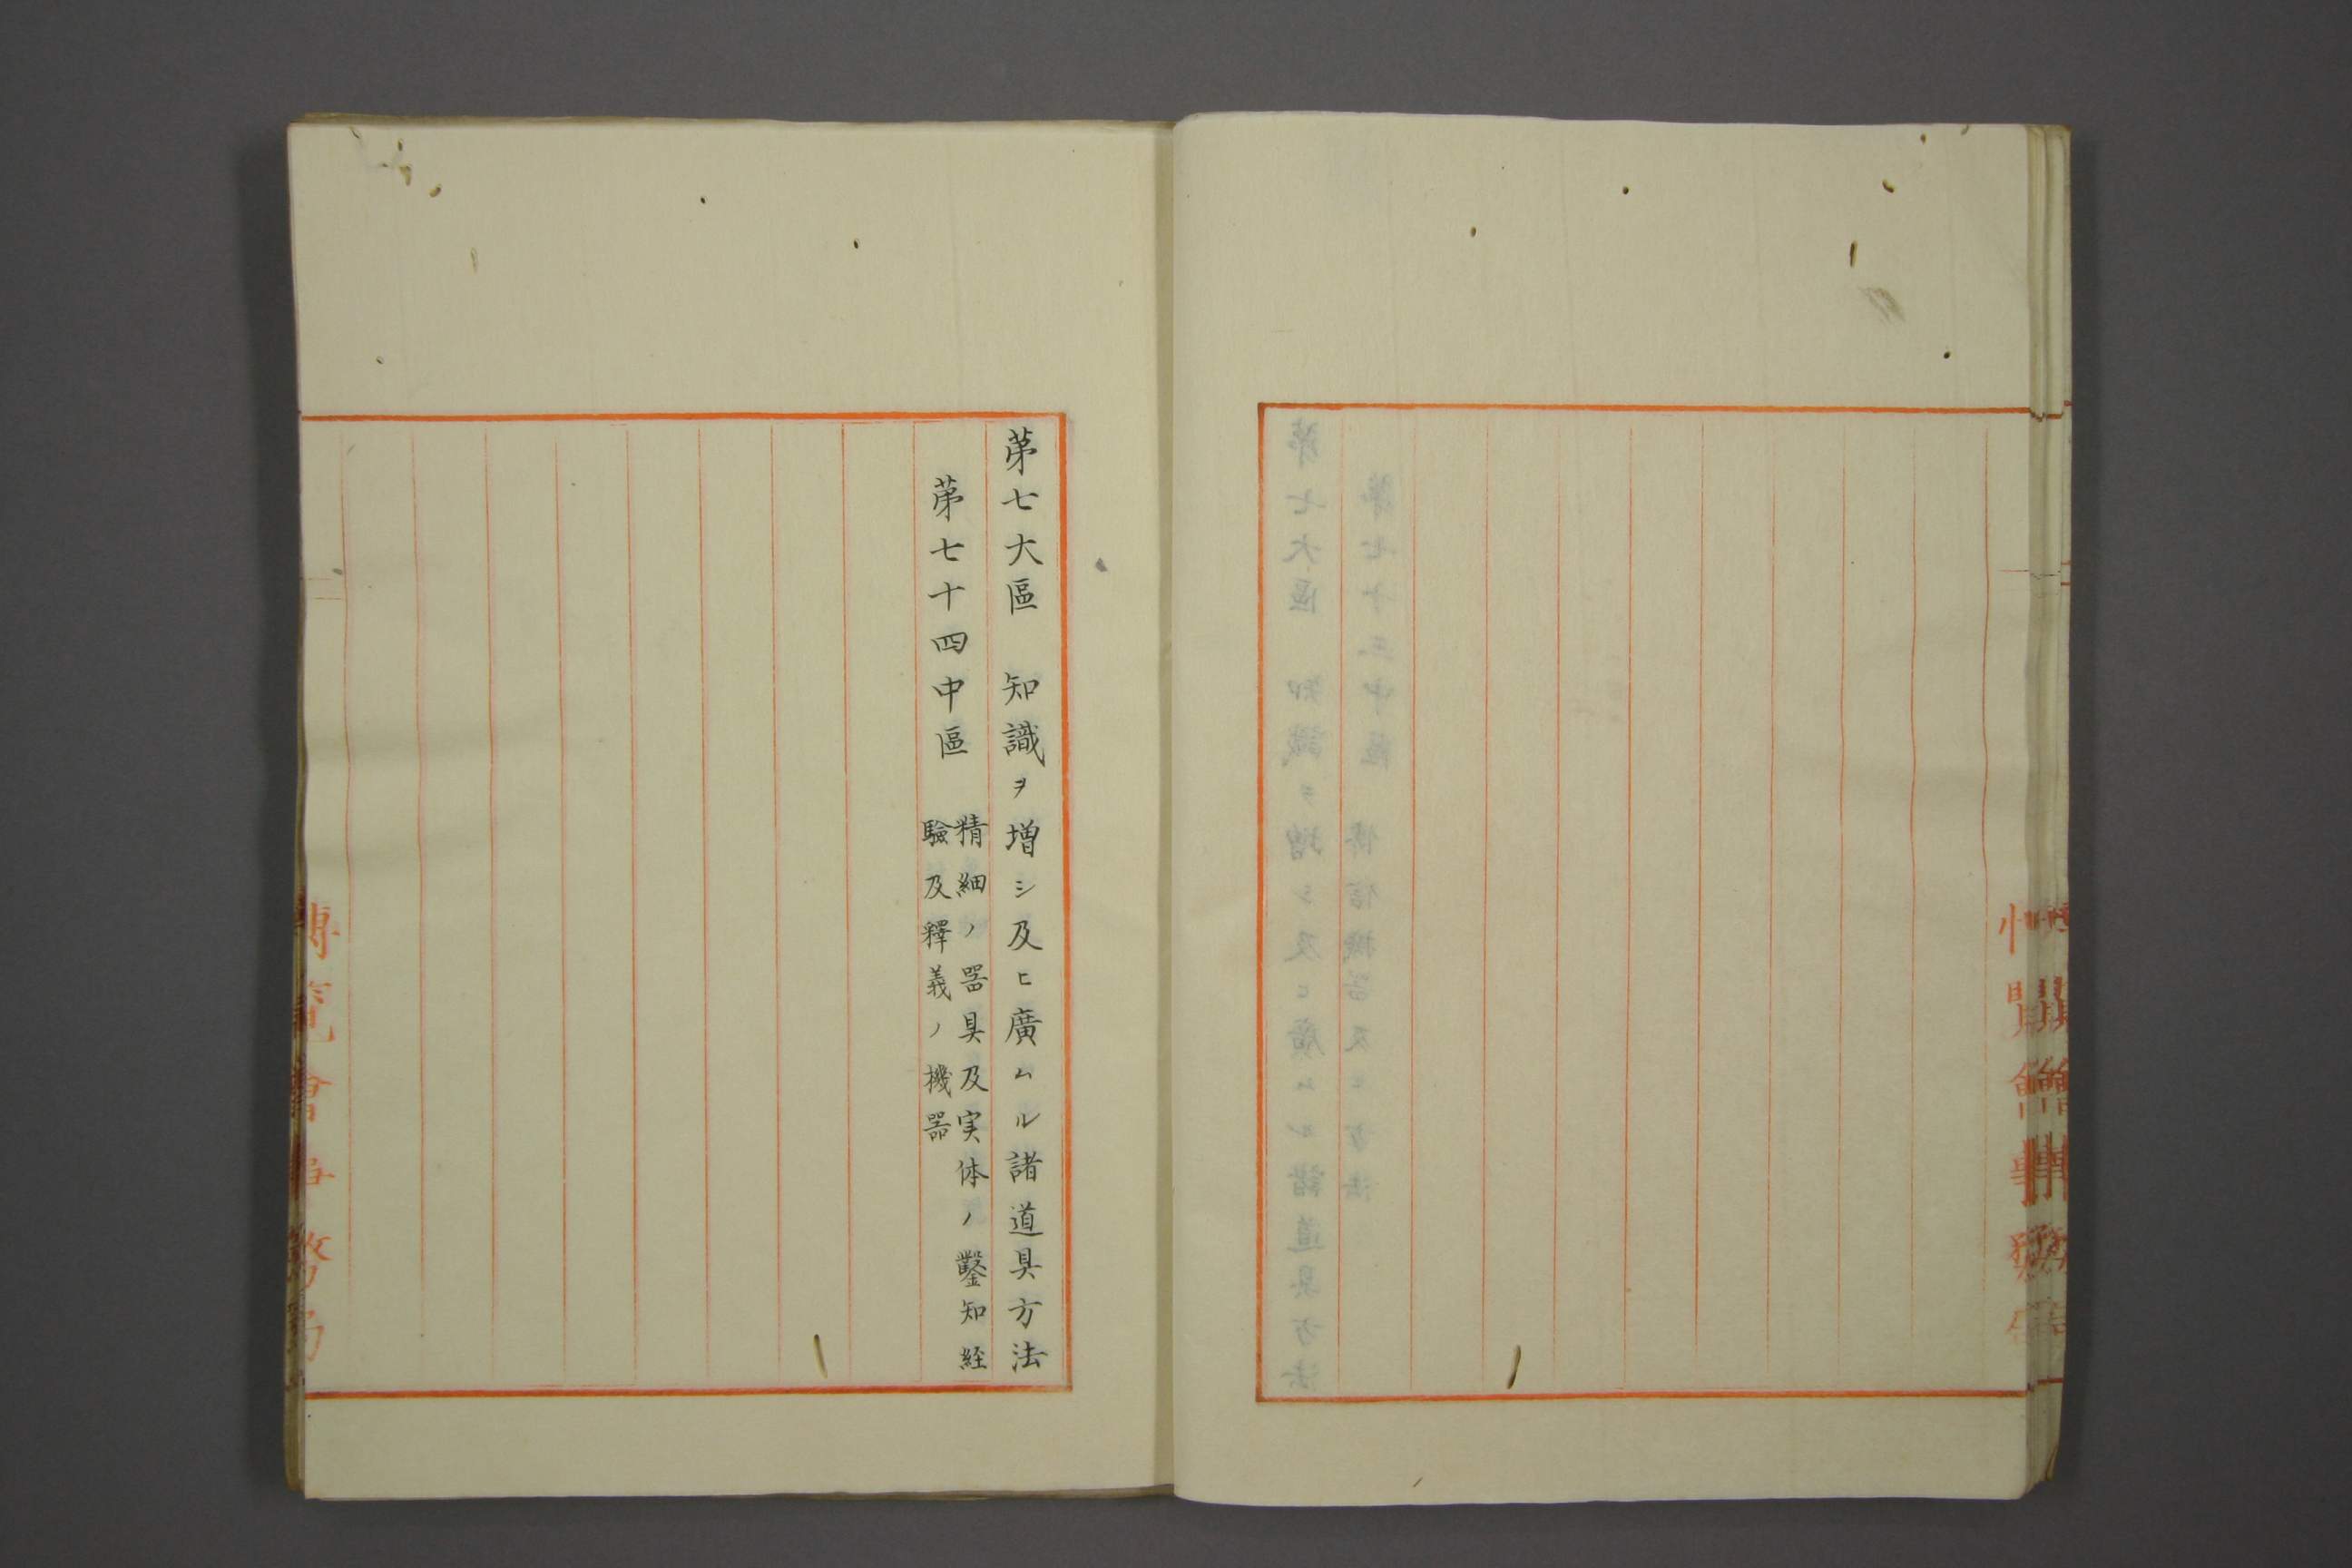 第七大區　知識ヲ増シ及ヒ廣ムル諸道具方法
第七十四中區　精細ノ器具及実体ノ鑿知経
驗及釋義ノ機器
博覧會事務局